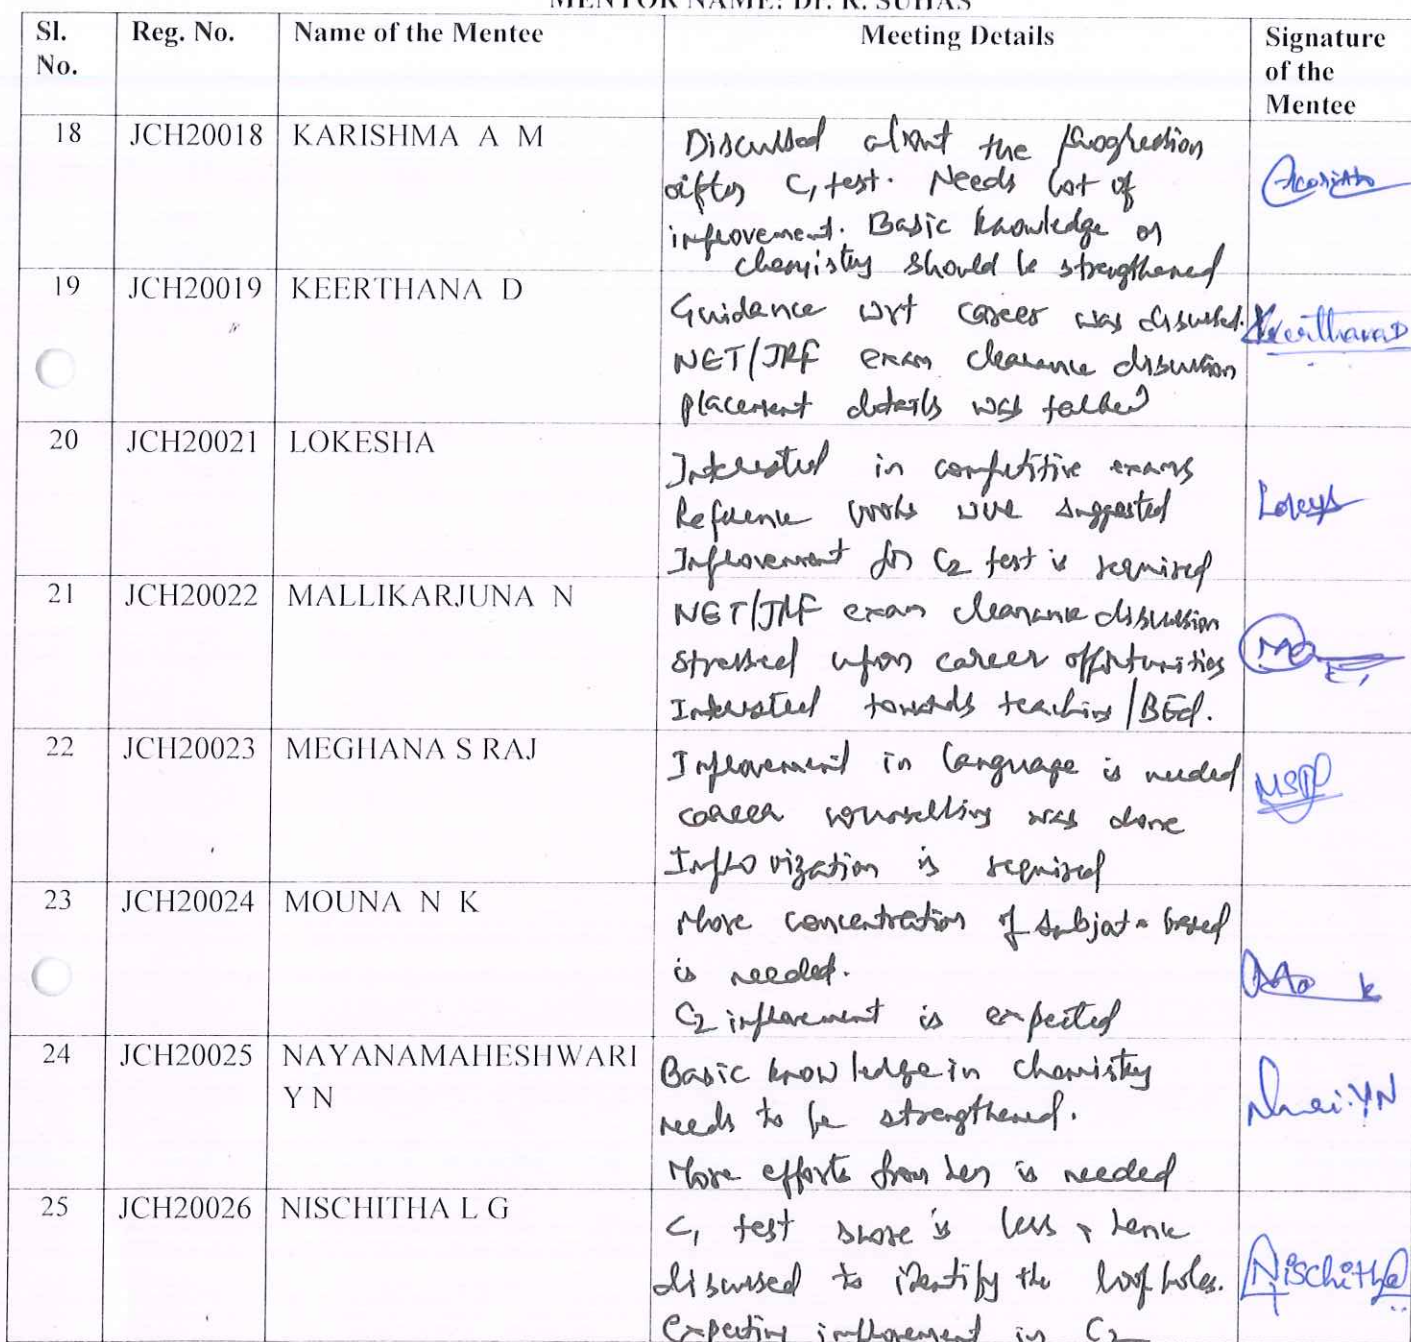 MENTOR NAME: Dr. R. SUHAS
Sl. No. Reg. No. Name of the Mentee Meeting Details Signature of the Mentee
18 JCH20018 KARISHMA A M
Discussed about the progression
after C1 test. Needs lot of
improvement. Basic knowledge of
chemistry should be strengthened
19 JCH20019 KEERTHANA D
Guidance wrt career was discussed.
NET/JRF exam clearance discussion
placement details was talked
Keerthana D
20 JCH20021 LOKESHA
Interested in competitive exams
Reference books were suggested
Improvement for C2 test is required
21 JCH20022 MALLIKARJUNA N
NET/JRF exam clearance discussion
stressed upon career opportunities
Interested towards teaching/BEd.
22 JCH20023 MEGHANA S RAJ
Improvement in language is needed
career counselling was done
is required
23 JCH20024 MOUNA N K
More concentration of subject based
is needed.
C2 improvement is expected
24 JCH20025 NAYANAMAHESHWARI Y N
Basic knowledge in chemistry
needs to be strengthened.
More efforts from her is needed
25 JCH20026 NISCHITHA L G
C1 test score is less, hence
discussed to identify the loop holes.
Expecting improvement in C2
Nischitha